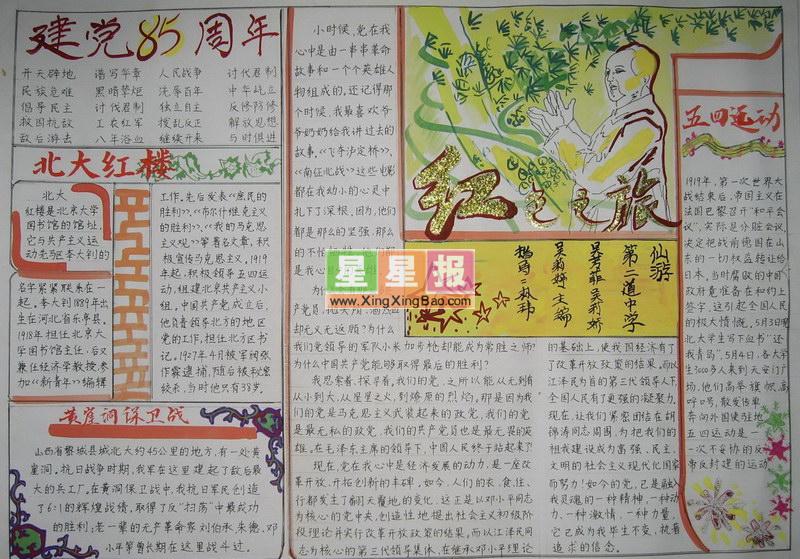 建党85周年
开天辟地 谱写华章 人民战争 讨伐君制
民族危难 黑暗禁炬 洗辱百年 中华屹立
倡导民主 讨伐君制 独立自主 反修防修
救国抗敌 工农红军 拨乱反正 解放思想
敌后游击 八年浴血 继续开来 与时俱进
北大红楼
北大
红楼是北京大学
图书馆的馆址,
它与共产主义运
动先驱李大钊的
名字紧紧联系在一
起。李大钊1889年出
生在河北省乐亭县。
1918年担任北京大
学图书馆主任,后又
兼任经济学教授,参
加《新青年》编辑
工作,先后发表《庶民的
胜利》、《布尔什维克主义
的胜利》、《我的马克思
主义观》等著名文章,积
极宣传马克思主义。1919
年起,积极领导五四运
动,组建北京共产主义小
组。中国共产党成立后,
他负责领导北方的地区
党的工作,担任北方区书
记。1927年4月被军阀张
作霖逮捕,随后被秘密
绞杀,当时他只有38岁。
黄崖洞保卫战
山西省黎城县城北大约45公里的地方,有一处黄
崖洞,抗日战争时期,我军在这里建起了敌后最
大的兵工厂。在黄洞保卫战中,我抗日军民创造
了6:1的辉煌战绩,取得了反"扫荡"中最成功
的胜利;老一辈的无产革命家刘伯承、朱德、邓
小平等曾长期在这里战斗过。
小时候,党在我
心中是由一串串革命
故事和一个个英雄人
物组成的,还记得那
个时候,我最喜欢爷
爷奶奶给我讲过去的
故事。《飞夺泸定桥》、
《南征北战》这些电影
都在我幼小的心灵中
扎下了深根,因为,他们
都是那么的坚强,那么
的不怕
是我心目
为什么
产党员,
却无又无这顾?为什么
我们党领导的军队小米加步枪却能成为常胜之师?
为什么中国共产党能够取得最后的胜利?
我思索着,探寻着,我们的党,之所以能从无到有
从小到大,从星星之火,到燎原的烈焰,那是因为我
们的党是马克思主义武装起来的政党,我们的党
是最无私的政党,我们的共产党员也是最无畏的英
雄。在毛泽东主席的领导下,中国人民终于站起来了!
现在,党在我心中是经济发展的动力,是一座改
革开放,开拓创新的丰碑,如今,人们的衣、食、住、
行都发生了翻天覆地的变化,这正是以邓小平同志
为核心的党中央,创造性地提出社会主义初级阶
段理论并实行改革开放政策的结果,而以江泽民同
志为核心的第三代领导集体,在继承邓小平理论
红色之旅
仙游
第二道中学
星星报
www.XingXingBao.com
的基础上,使我国经济有了
了改革开放政策的结果,而以
江泽民为首的第三代领导人下,
全国人民有更强的凝聚力。
现在,让我们紧密团结在胡
锦涛同志周围,为把我们的
祖我建设成为富强、民主、
文明的社会主义现代化国家
而努力!如今的党,已是融入
我灵魂的一种精神,一种动
力,一种激情,一种力量,
它已成为我毕生不变,执著
追求的信念。
五四运动
1919年,第一次世界大
战结束后,帝国主义在
法国巴黎召开"和平会
议",实际是分脏会议,
决定把战前德国在山
东的一切权益转让给
日本,当时腐败的中国
政府竟准备在和约上
签字,这引起全国人民
的极大愤慨。5月3日晚
北大学生写下血书"还
我青岛"。5月4日,各大学
生3000多人来到天安门广
场,他们高举旗帜,高
呼口号,散发传单,
奔向外国使驻地。
五四运动是一
次不妥协的反
帝反封建的运动